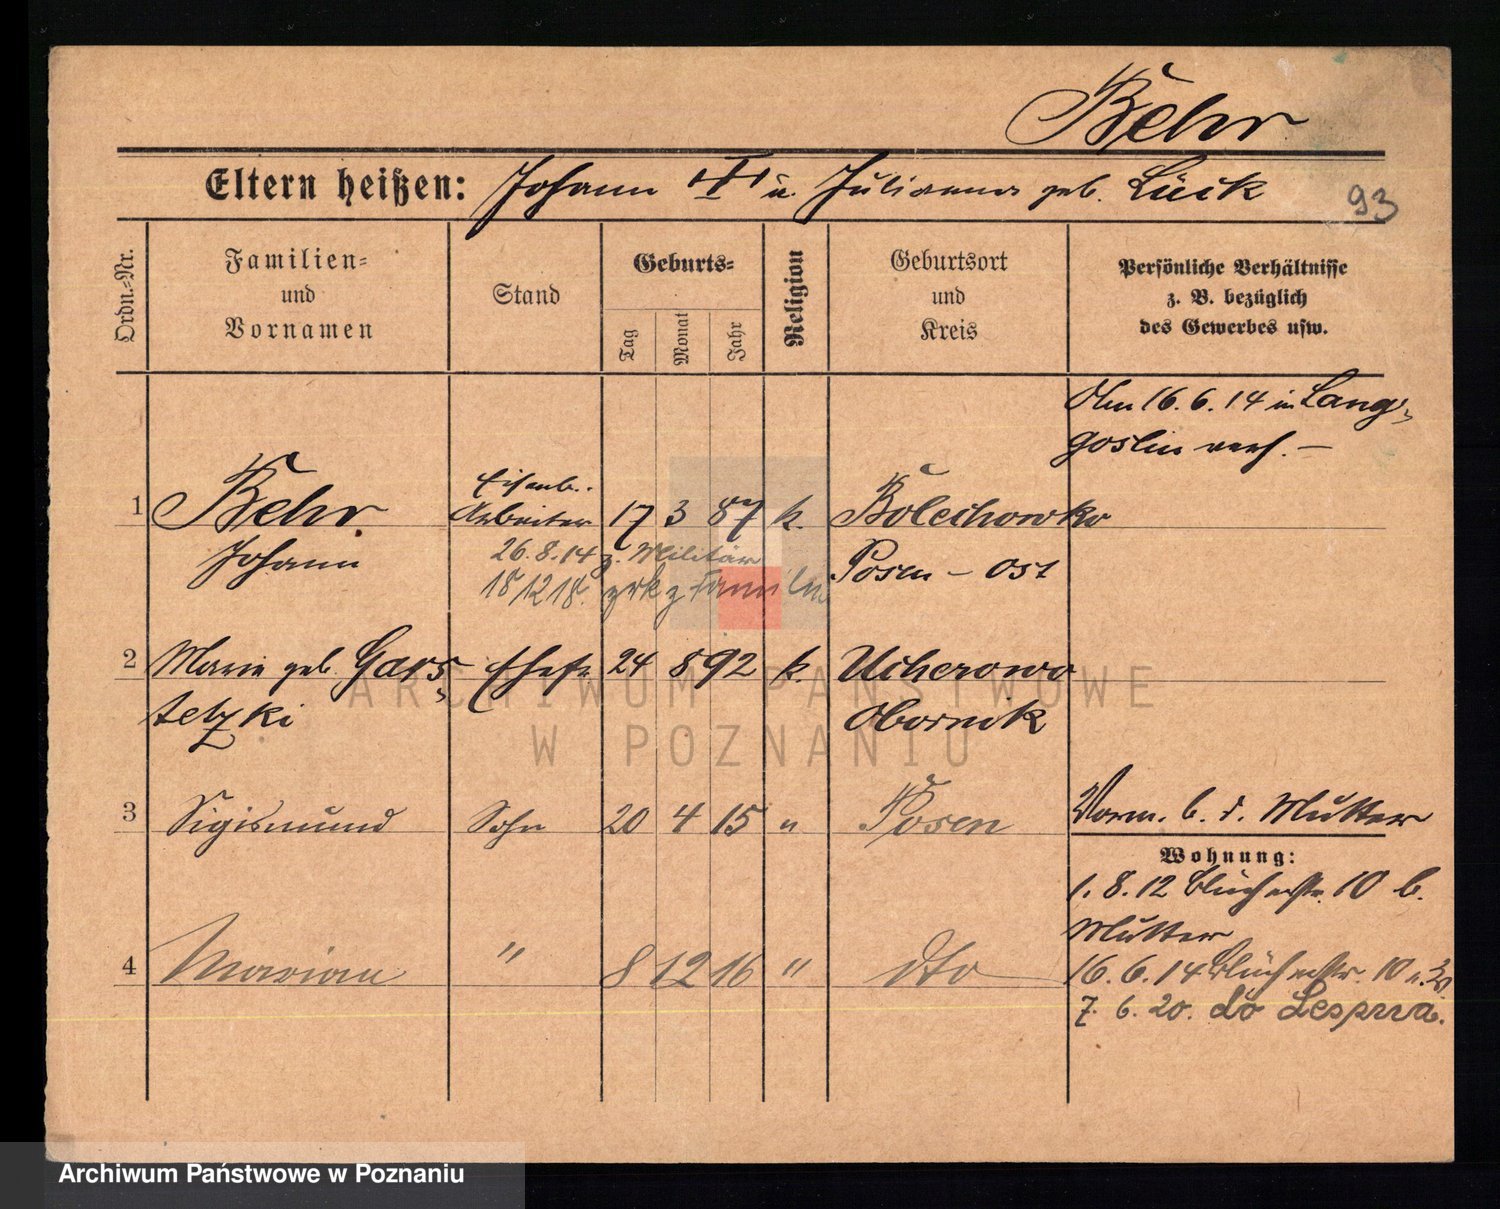 Behr
Eltern heißen: Johann u. Julianna geb. Lück
93
Ordn.-Nr.
Familien-
und
Vornamen
Stand
Geburts-
Tag
Monat
Jahr
Religion
Geburtsort
und
Kreis
Persönliche Verhältnisse
z. B. bezüglich
des Gewerbes usw.
Am 16.6.14 in Lang-
goslin verh. –
1 Behr Eisenb. Arbeiter 17 3 87 k. Bolechowko
Johann 26.8.14 z. Militär Posen – Ost
18 12 18. zrk z Familie
2 Marie geb. Gars- Ehefr. 24 8 92 k. Ucherowo
tetzki Obornik
3 Sigismund Sohn 20 4 15 " Posen
Vorm. b. d. Mutter
Wohnung:
1.8.12 Blücherstr. 10 b.
Mutter
4 Marian " 8 12 16 " dto
16.6.14 Blücherstr. 10
7. 6. 20. do
ARCHIWUM PAŃSTWOWE
W POZNANIU
Archiwum Państwowe w Poznaniu